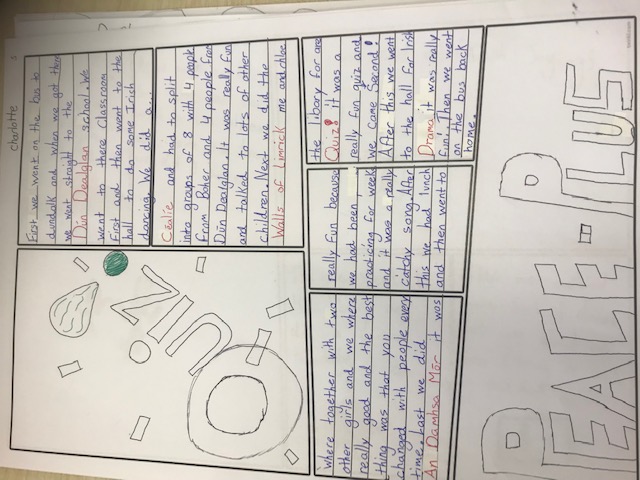 Charlotte
First we went on the bus to
dundalk and when we got there
we went straight to the
Dún Dealglan school. We
went to there Classroom
first and then went to the
hall to do some Irish
dancing. We did a...
Céalie and had to split
into groups of 8 with 4 people
from Baher and 4 people from
Dún Dealglan. It was really fun
and talked to lots of other
children. Next we did the
Walls of Limrick me and chloe
Where together with two
other girls and we where
really good and the best
thing was that you
changed with people every
time. Last we did
An Damhsa Mór it was
really fun because
we had been
practicing for week
and it was a really
catchy song. After
this we had lunch
and then went to
the libary for are
Quiz! it was a
really fun quiz and
we came Second!
After this we went
to the hall for Irish
Drama it was really
fun. Then we went
on the bus back
home.
QUIZ!
PEACE-PLUS